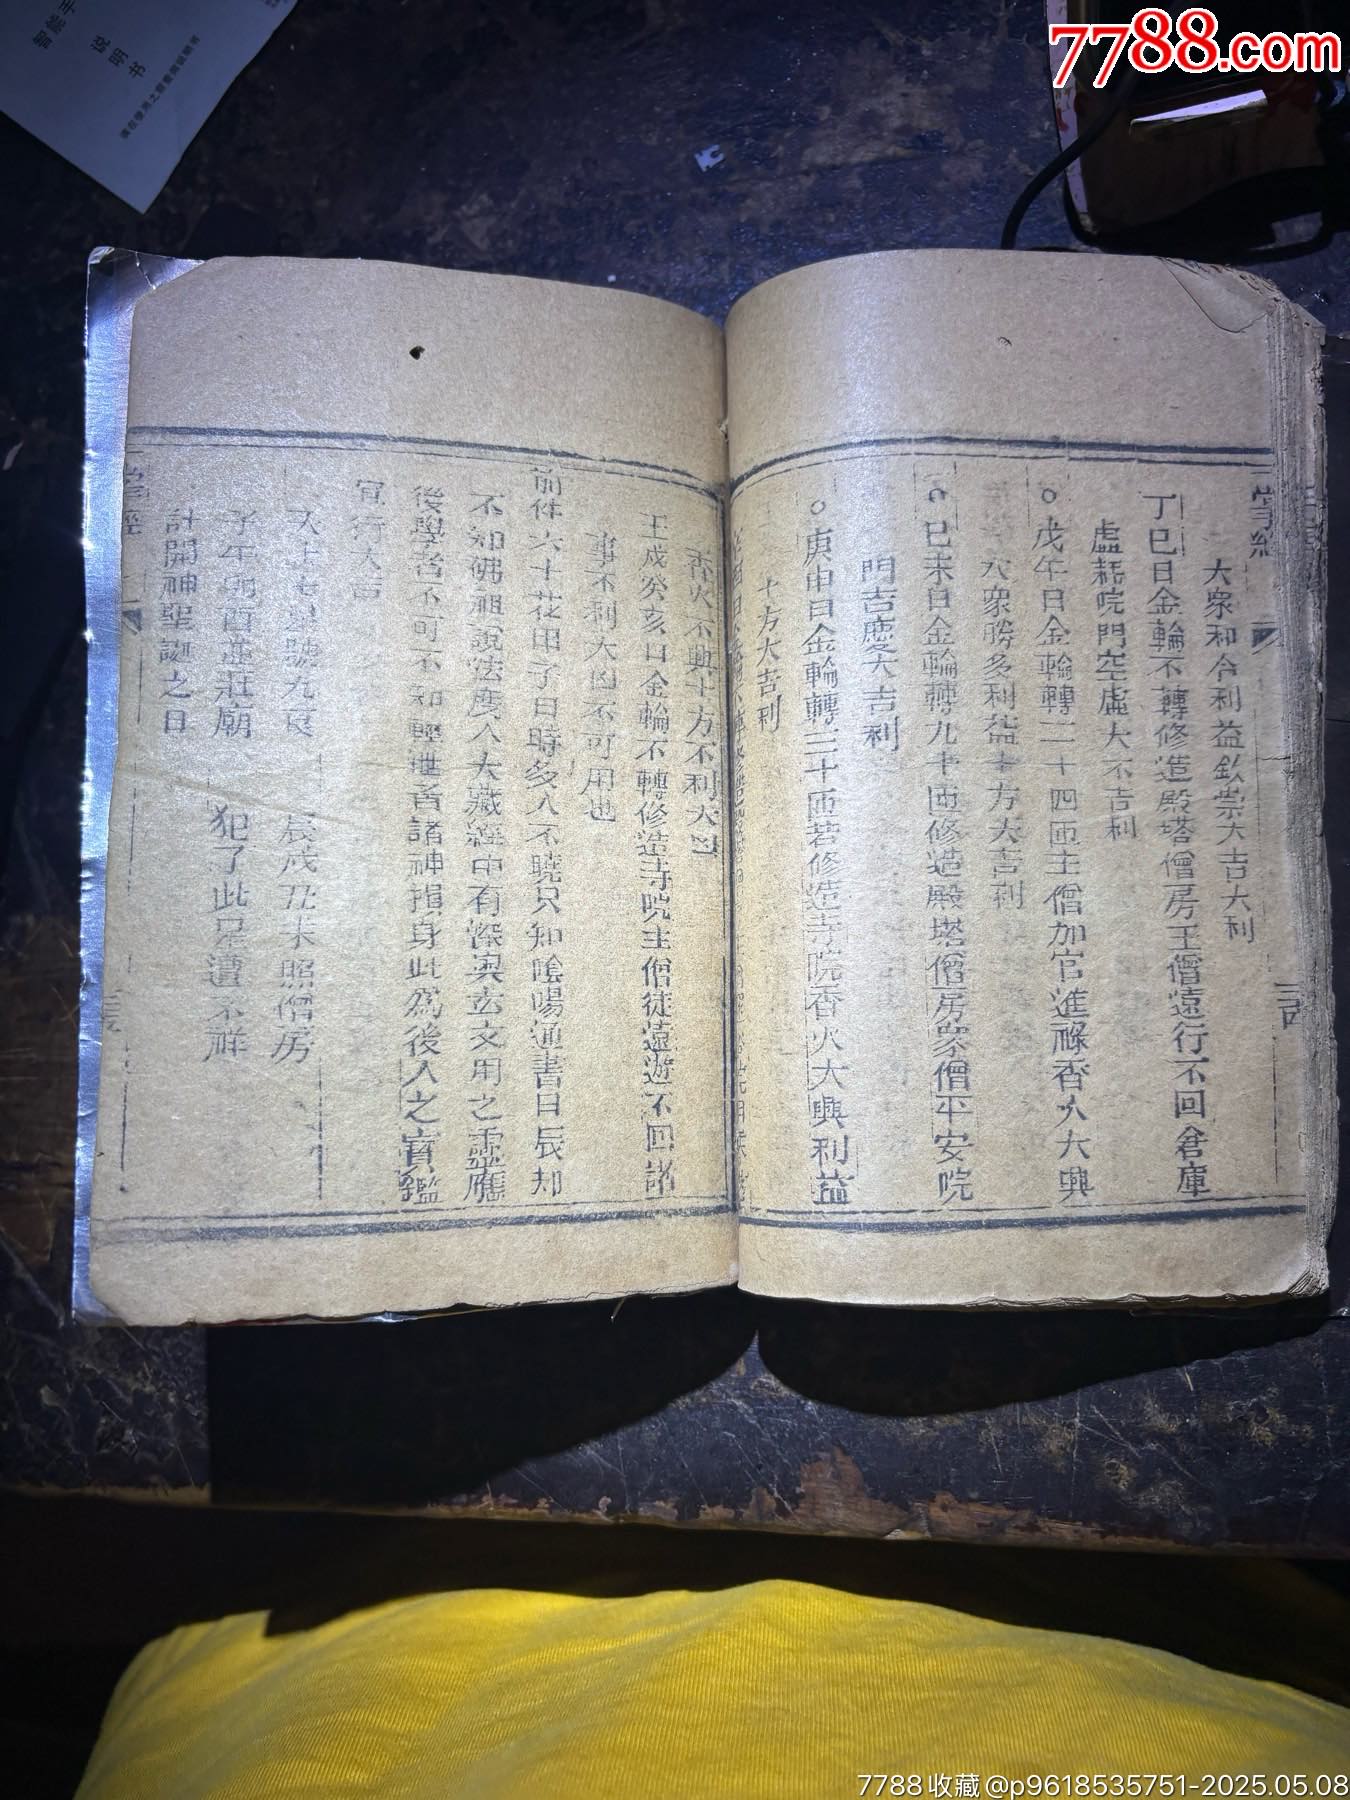 7788.com
说明书
大眾和合利益欽崇大吉大利
丁巳日金輪不轉修造殿塔僧房主僧遠行不回倉庫
虛耗院門空虛大不吉利
○戊午日金輪轉二十四匝主僧加官進祿香火大興
大眾勝多利益十方大吉利
○巳未日金輪轉九十匝修造殿塔僧房眾僧平安院
門吉慶大吉利
○庚申日金輪轉三十匝若修造寺院香火大興利益
十方大吉利
香火不興十方不利大凶
壬戌癸亥日金輪不轉修造寺院主僧徒遠遊不回諸
事不利大凶不可用也
前件六十花甲子日時多人不曉只知陰陽通書日辰却
不知佛祖說法度人大藏經中有深奧玄文用之靈應
後學者不可不知輕泄者諸神損身此為後人之寶鑑
宜行大吉
太上老君號九良 辰戌丑未照僧房
子午卯酉並莊廟 犯了此星遭不祥
計開神聖誕之日
7788收藏@p9618535751-2025.05.08